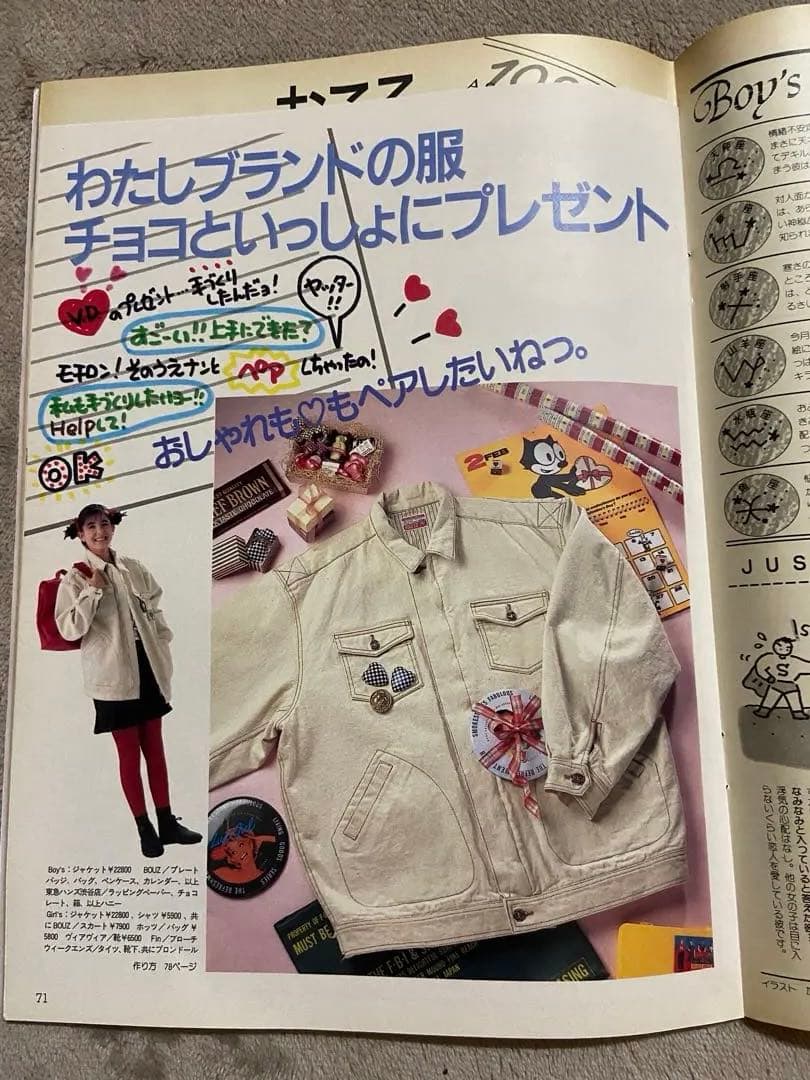 わたしブランドの服
チョコといっしょにプレゼント
V.D.のプレゼント…手づくりしたんだョ!
ヤッター!!
すごーい!!上手にできた?
モチロン!そのうえナンとペアしちゃったの!
私も手づくりしたいヨー!!
Helpして!
OK
おしゃれも♡もペアしたいねっ。
2 FEB
BROWN
CHOCOLATE
SMOKEY'S FABULOUS
THE REFRESHMENT
LIVING GOODS
PROPERTY OF
MUST BE
THE F·B·I &
JAPAN
Boy's:ジャケット¥22800 BOUZ/プレート
バッジ、バッグ、ペンケース、カレンダー、以上
東急ハンズ渋谷店/ラッピングペーパー、チョコ
レート、箱、以上ハニー
Girl's:ジャケット¥22800、シャツ¥5900、共
にBOUZ/スカート¥7900 ホップ/バッグ¥
5800 ヴィアヴィア/靴¥6500 Fin/ブローチ
ウィークエンズ/タイツ、靴下、共にブロンドール
作り方 78ページ
71
Boy's
天秤座
射手座
山羊座
水瓶座
JUS
S
なみなみと入っていると答えた彼
浮気の心配はなし。他の女の子は目に入
らないくらい恋人を愛している彼です。
イラスト